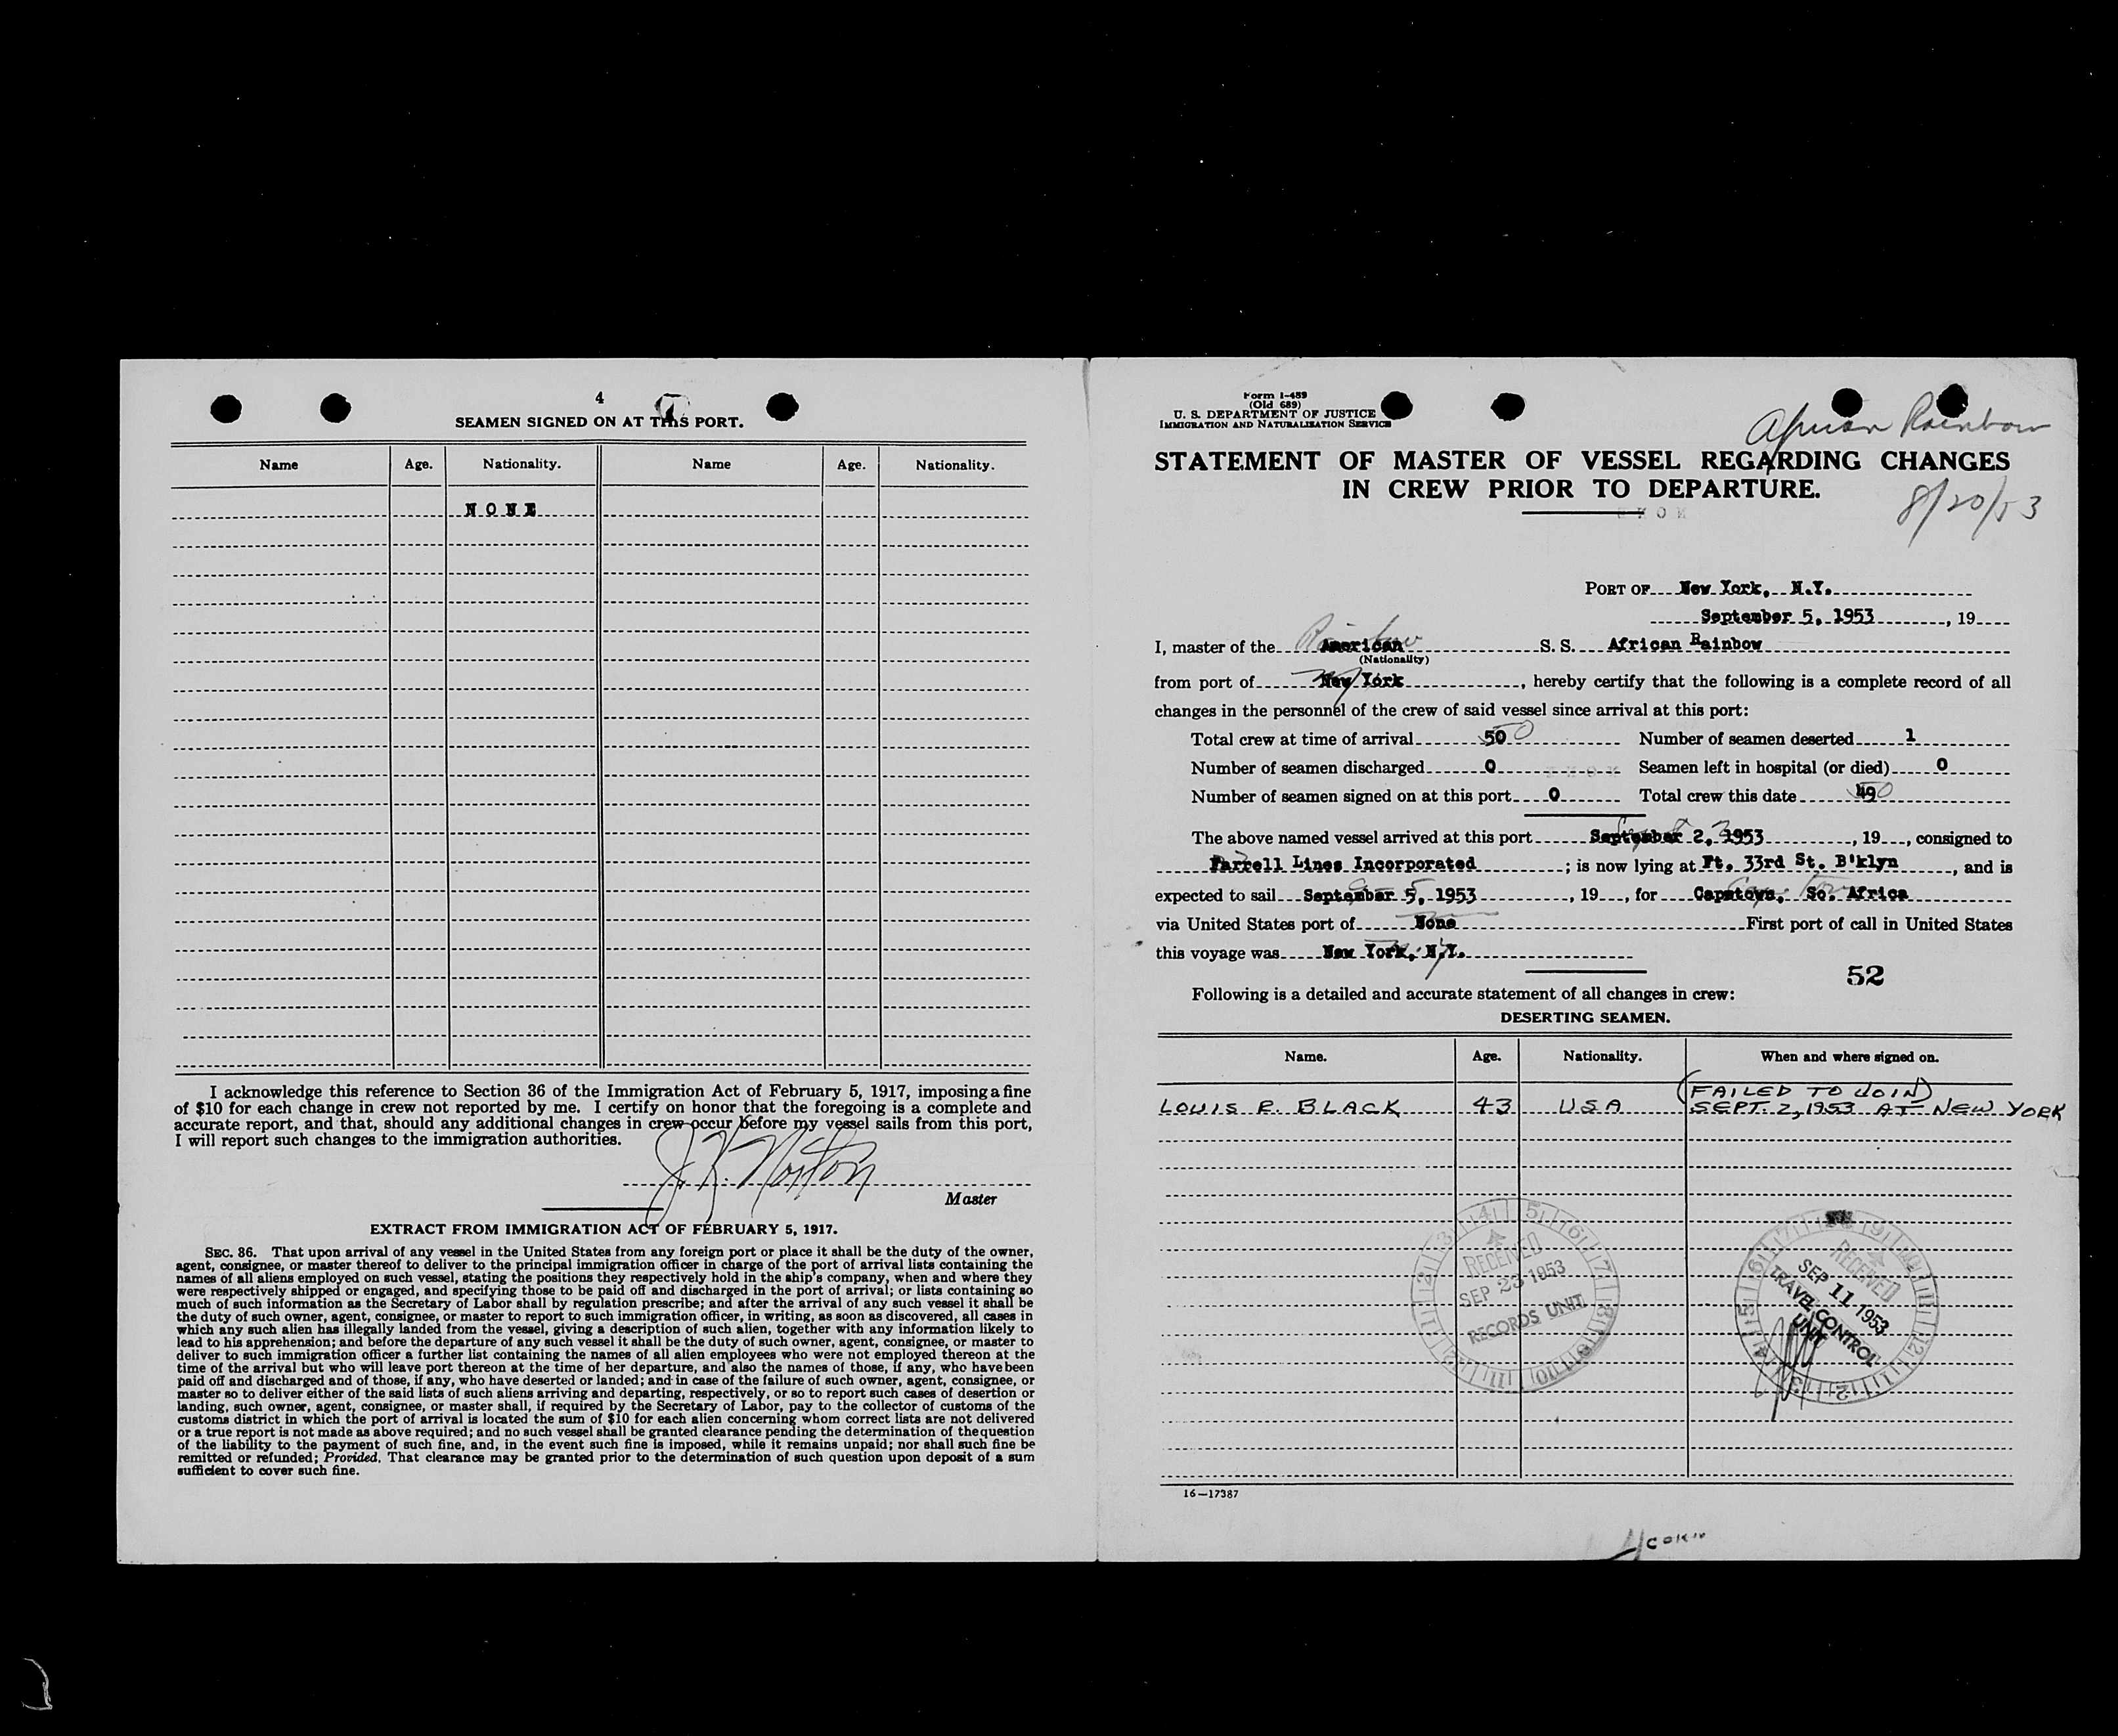 4
SEAMEN SIGNED ON AT THIS PORT.
Name Age. Nationality. Name Age. Nationality.
NONE
I acknowledge this reference to Section 36 of the Immigration Act of February 5, 1917, imposing a fine
of $10 for each change in crew not reported by me. I certify on honor that the foregoing is a complete and
accurate report, and that, should any additional changes in crew occur before my vessel sails from this port,
I will report such changes to the immigration authorities.
J. K. Norton
Master
EXTRACT FROM IMMIGRATION ACT OF FEBRUARY 5, 1917.
SEC. 36. That upon arrival of any vessel in the United States from any foreign port or place it shall be the duty of the owner,
agent, consignee, or master thereof to deliver to the principal immigration officer in charge of the port of arrival lists containing the
names of all aliens employed on such vessel, stating the positions they respectively hold in the ship's company, when and where they
were respectively shipped or engaged, and specifying those to be paid off and discharged in the port of arrival; or lists containing so
much of such information as the Secretary of Labor shall by regulation prescribe; and after the arrival of any such vessel it shall be
the duty of such owner, agent, consignee, or master to report to such immigration officer, in writing, as soon as discovered, all cases in
which any such alien has illegally landed from the vessel, giving a description of such alien, together with any information likely to
lead to his apprehension; and before the departure of any such vessel it shall be the duty of such owner, agent, consignee, or master to
deliver to such immigration officer a further list containing the names of all alien employees who were not employed thereon at the
time of the arrival but who will leave port thereon at the time of her departure, and also the names of those, if any, who have been
paid off and discharged and of those, if any, who have deserted or landed; and in case of the failure of such owner, agent, consignee, or
master so to deliver either of the said lists of such aliens arriving and departing, respectively, or so to report such cases of desertion or
landing, such owner, agent, consignee, or master shall, if required by the Secretary of Labor, pay to the collector of customs of the
customs district in which the port of arrival is located the sum of $10 for each alien concerning whom correct lists are not delivered
or a true report is not made as above required; and no such vessel shall be granted clearance pending the determination of the question
of the liability to the payment of such fine, and, in the event such fine is imposed, while it remains unpaid; nor shall such fine be
remitted or refunded; Provided, That clearance may be granted prior to the determination of such question upon deposit of a sum
sufficient to cover such fine.
Form I-489
(Old 689)
U. S. DEPARTMENT OF JUSTICE
IMMIGRATION AND NATURALIZATION SERVICE
African Rainbow
STATEMENT OF MASTER OF VESSEL REGARDING CHANGES
IN CREW PRIOR TO DEPARTURE.
8/20/53
PORT OF New York, N.Y.
September 5, 1953, 19
I, master of the American S. S. African Rainbow
(Nationality)
from port of New York, hereby certify that the following is a complete record of all
changes in the personnel of the crew of said vessel since arrival at this port:
Total crew at time of arrival 50 Number of seamen deserted 1
Number of seamen discharged 0 Seamen left in hospital (or died) 0
Number of seamen signed on at this port 0 Total crew this date 49
The above named vessel arrived at this port September 2, 1953, 19, consigned to
Farrell Lines Incorporated; is now lying at Ft. 33rd St. B'klyn, and is
expected to sail September 5, 1953, 19, for Capetown, So. Africa
via United States port of None First port of call in United States
this voyage was New York, N.Y.
52
Following is a detailed and accurate statement of all changes in crew:
DESERTING SEAMEN.
Name. Age. Nationality. When and where signed on.
(FAILED TO JOIN)
LOUIS R. BLACK 43 USA SEPT. 2, 1953 AT NEW YORK
RECEIVED
SEP 23 1953
RECORDS UNIT
RECEIVED
SEP 11 1953
TRAVEL CONTROL
UNIT
16—17387